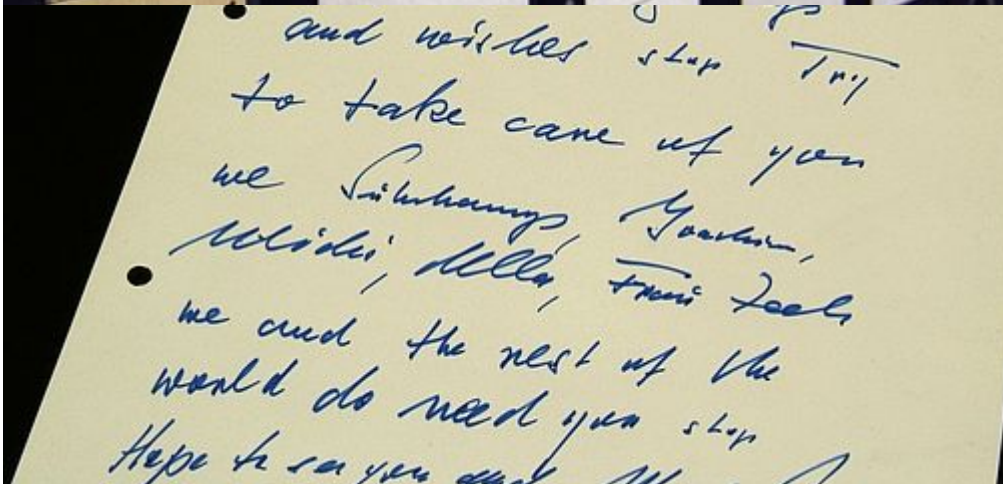 and wishes stop Try
to take care of you
we Suhrkamps, Joachim,
Della,
we and the rest of the
world do need you stop
Hope to see you and